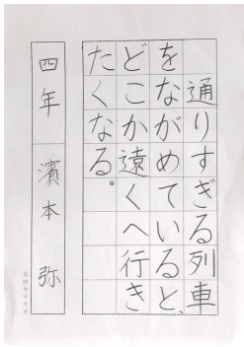 通りすぎる列車
をながめていると、
どこか遠くへ行き
たくなる。
四年 濱本 弥